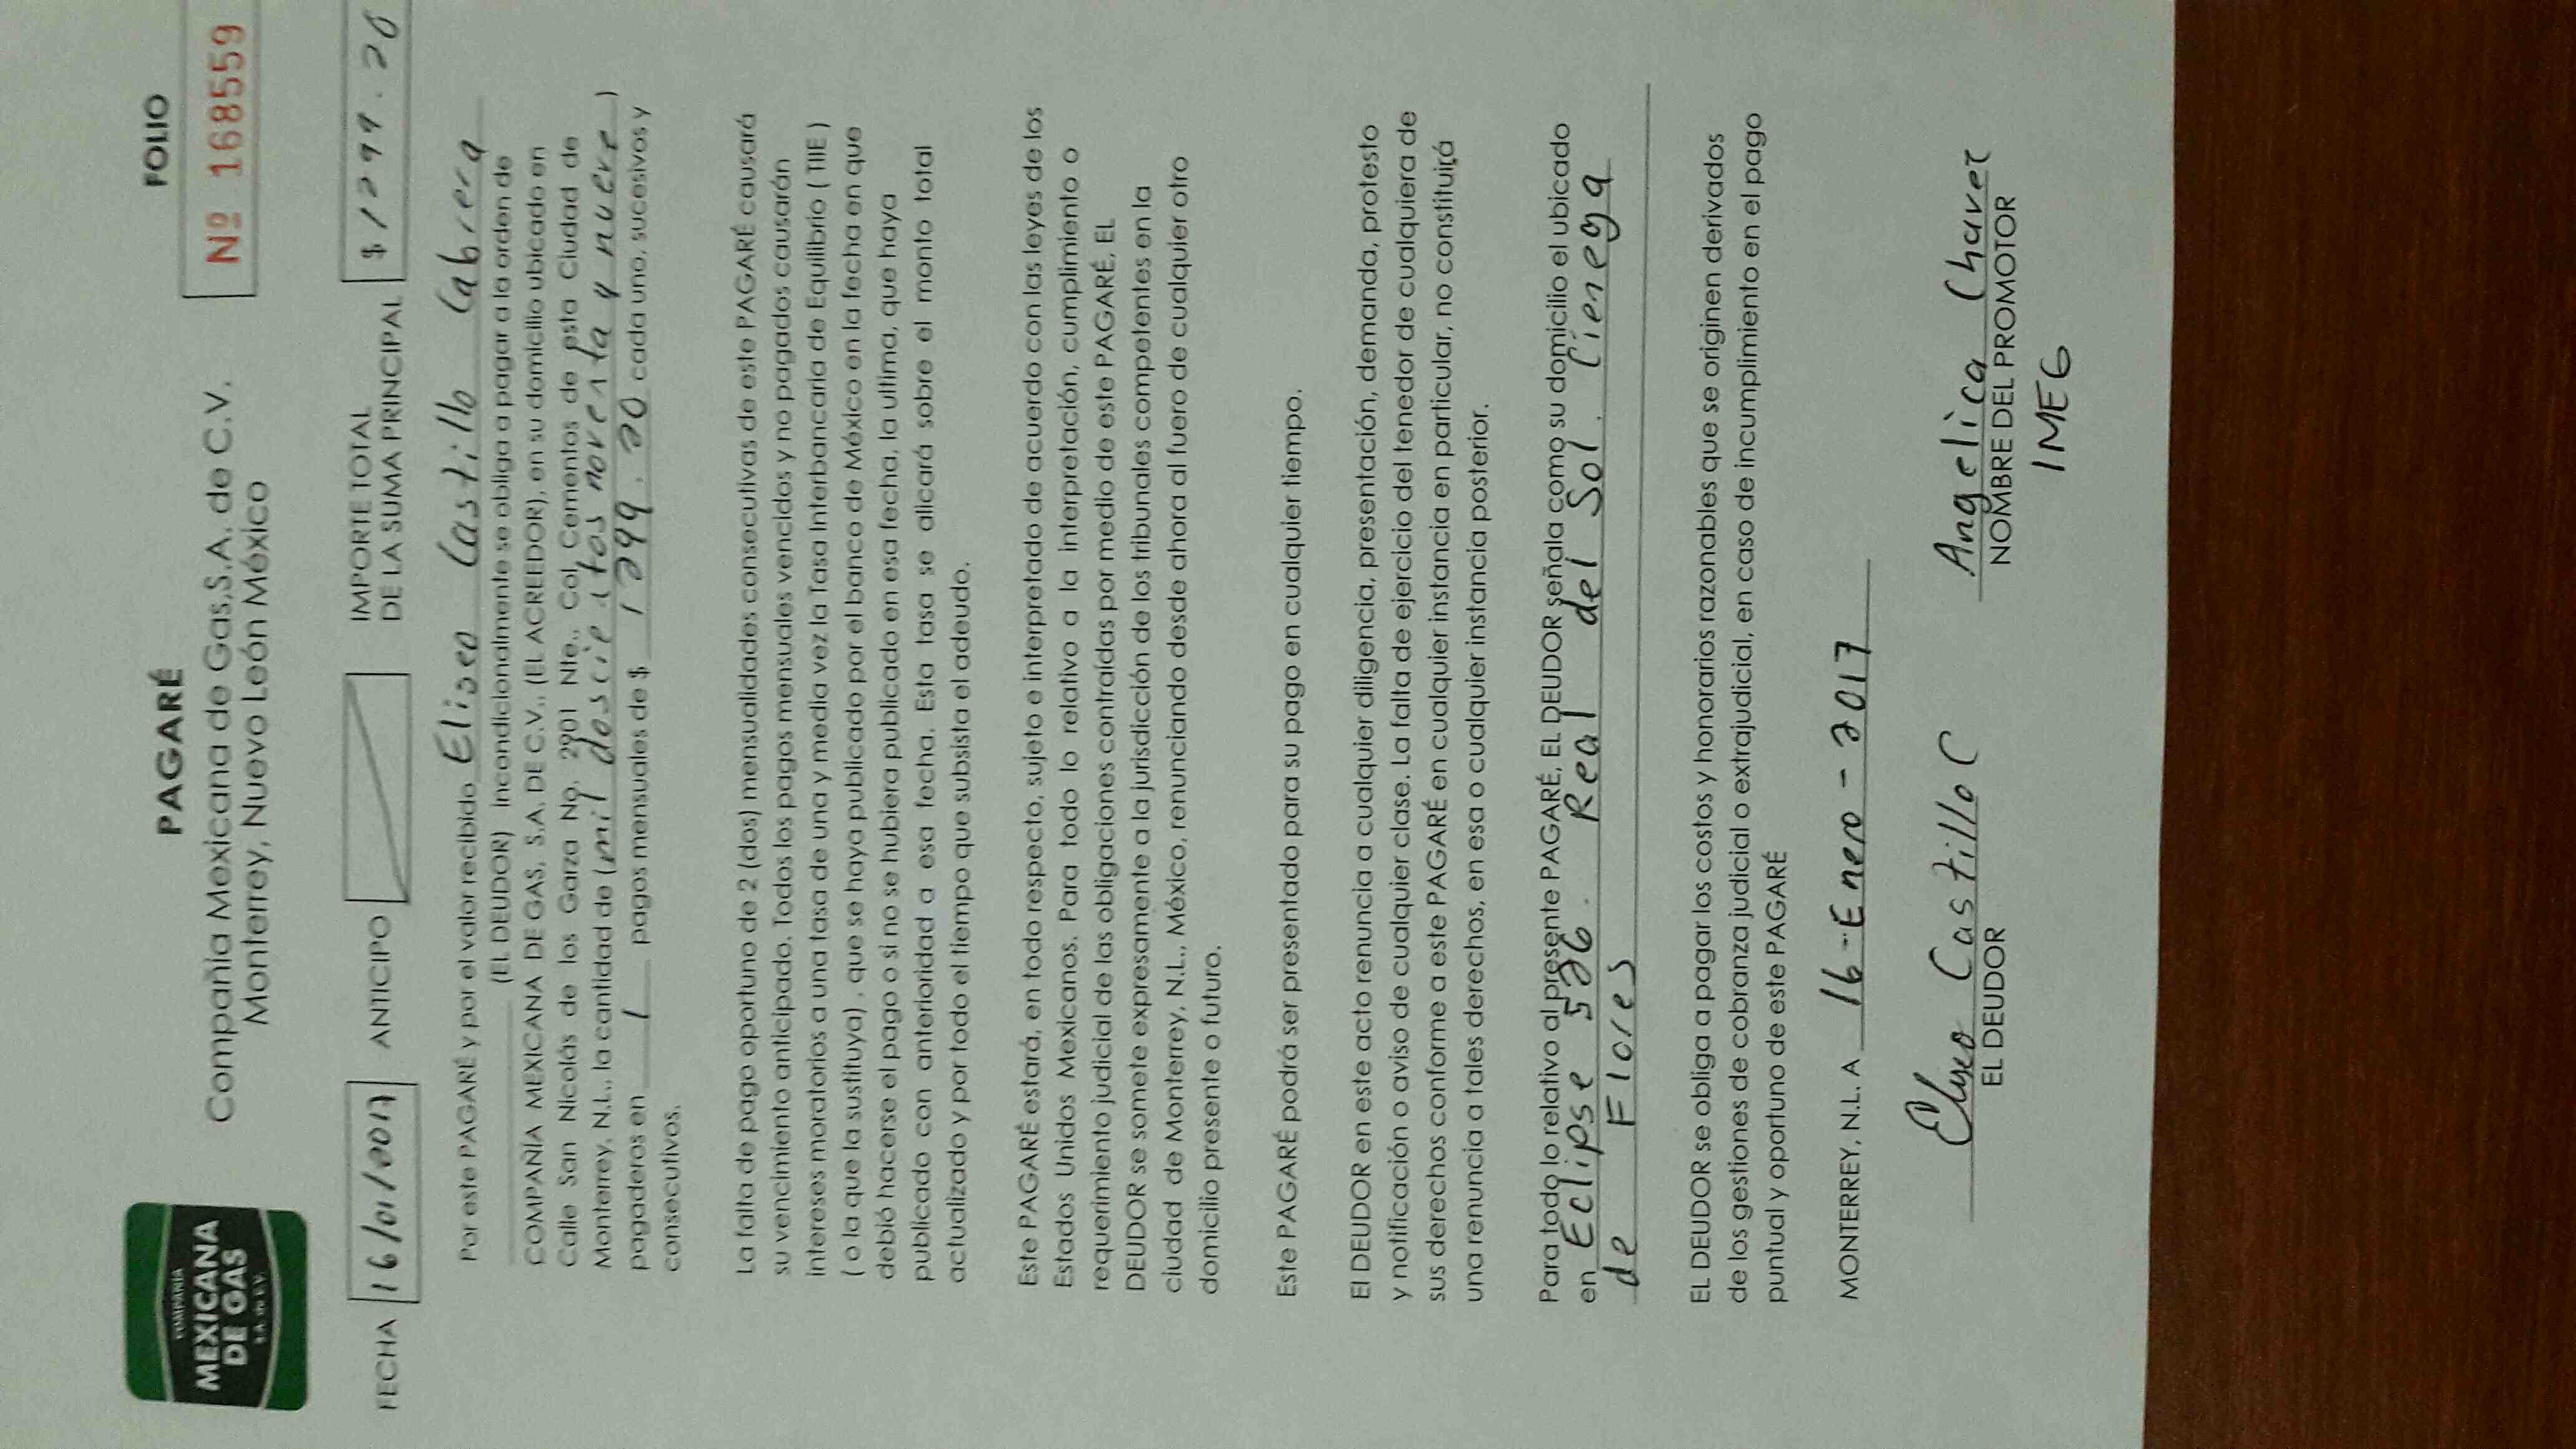 COMPAÑÍA
MEXICANA
DE GAS
S.A. de C.V.
PAGARÉ
FOLIO
Compañía Mexicana de Gas,S.A. de C.V.
Nº 168559
Monterrey, Nuevo León México
FECHA 16/01/2017 ANTICIPO IMPORTE TOTAL
DE LA SUMA PRINCIPAL $1299.20
Por este PAGARÉ y por el valor recibido Eliseo Castillo Cabrera
(EL DEUDOR) incondicionalmente se obliga a pagar a la orden de
COMPAÑÍA MEXICANA DE GAS, S.A. DE C.V., (EL ACREEDOR), en su domicilio ubicado en
Calle San Nicolás de los Garza No. 2901 Nte., Col. Cementos de esta Ciudad de
Monterrey, N.L., la cantidad de (mil doscientos noventa y nueve)
pagaderos en 1 pagos mensuales de $ 1299.20 cada uno, sucesivos y
consecutivos.
La falta de pago oportuno de 2 (dos) mensualidades consecutivas de este PAGARÉ causará
su vencimiento anticipado. Todos los pagos mensuales vencidos y no pagados causarán
intereses moratorios a una tasa de una y media vez la Tasa Interbancaria de Equilibrio ( TIIE )
( o la que la sustituya) , que se haya publicado por el banco de México en la fecha en que
debió hacerse el pago o si no se hubiera publicado en esa fecha, la ultima, que haya
publicado con anterioridad a esa fecha. Esta tasa se alicará sobre el monto total
actualizado y por todo el tiempo que subsista el adeudo.
Este PAGARÉ estará, en todo respecto, sujeto e interpretado de acuerdo con las leyes de los
Estados Unidos Mexicanos. Para todo lo relativo a la interpretación, cumplimiento o
requerimiento judicial de las obligaciones contraídas por medio de este PAGARÉ, EL
DEUDOR se somete expresamente a la jurisdicción de los tribunales competentes en la
ciudad de Monterrey, N.L., México, renunciando desde ahora al fuero de cualquier otro
domicilio presente o futuro.
Este PAGARÉ podrá ser presentado para su pago en cualquier tiempo.
El DEUDOR en este acto renuncia a cualquier diligencia, presentación, demanda, protesto
y notificación o aviso de cualquier clase. La falta de ejercicio del tenedor de cualquiera de
sus derechos conforme a este PAGARÉ en cualquier instancia en particular, no constituirá
una renuncia a tales derechos, en esa o cualquier instancia posterior.
Para todo lo relativo al presente PAGARÉ, EL DEUDOR señala como su domicilio el ubicado
en Eclipse 526. Real del Sol. Cienega
de Flores
EL DEUDOR se obliga a pagar los costos y honorarios razonables que se originen derivados
de los gestiones de cobranza judicial o extrajudicial, en caso de incumplimiento en el pago
puntual y oportuno de este PAGARÉ
MONTERREY, N.L. A 16-Enero-2017
Eliseo Castillo C
EL DEUDOR
Angelica Chavez
NOMBRE DEL PROMOTOR
IMEG